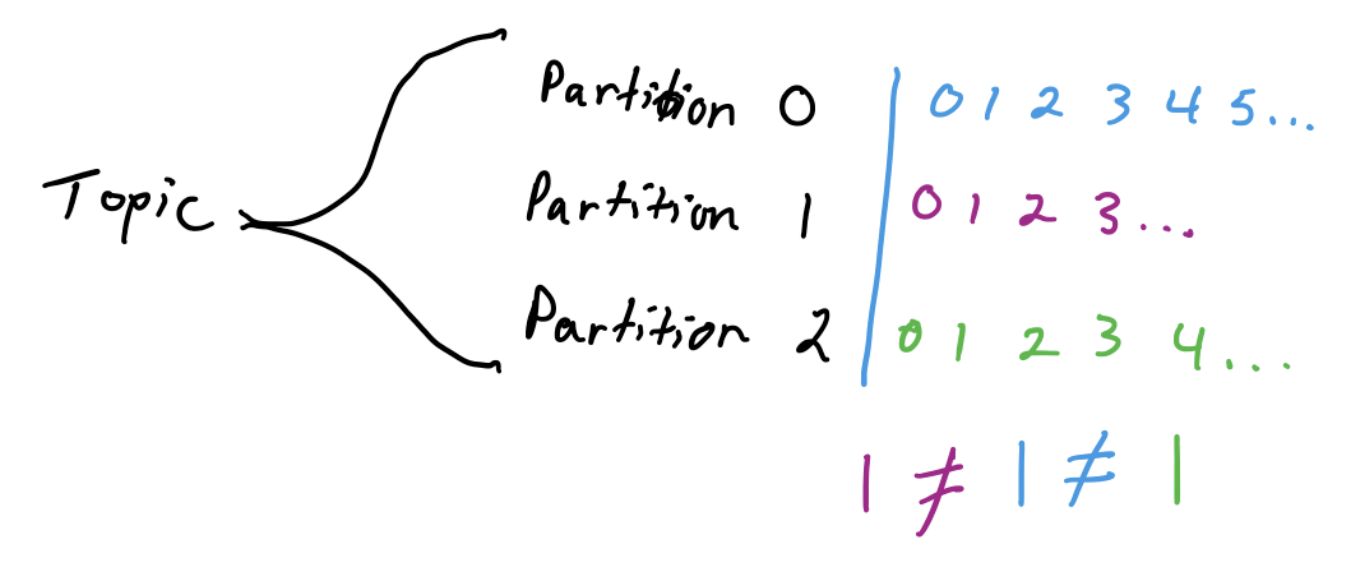 Partition 0 0 1 2 3 4 5...
Topic Partition 1 0 1 2 3...
Partition 2 0 1 2 3 4...
1 ≠ 1 ≠ 1